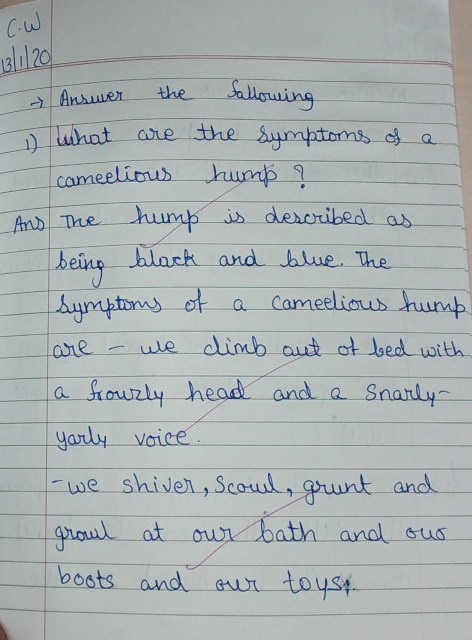 C.W
13/1/20
→ Answer the following
1) What are the symptoms of a
cameelious hump ?
Ans The hump is described as
being black and blue. The
symptoms of a cameelious hump
are - we climb out of bed with
a frouzly head and a snarly-
yarly voice.
-we shiver, scowl, grunt and
growl at our bath and our
boots and our toys.